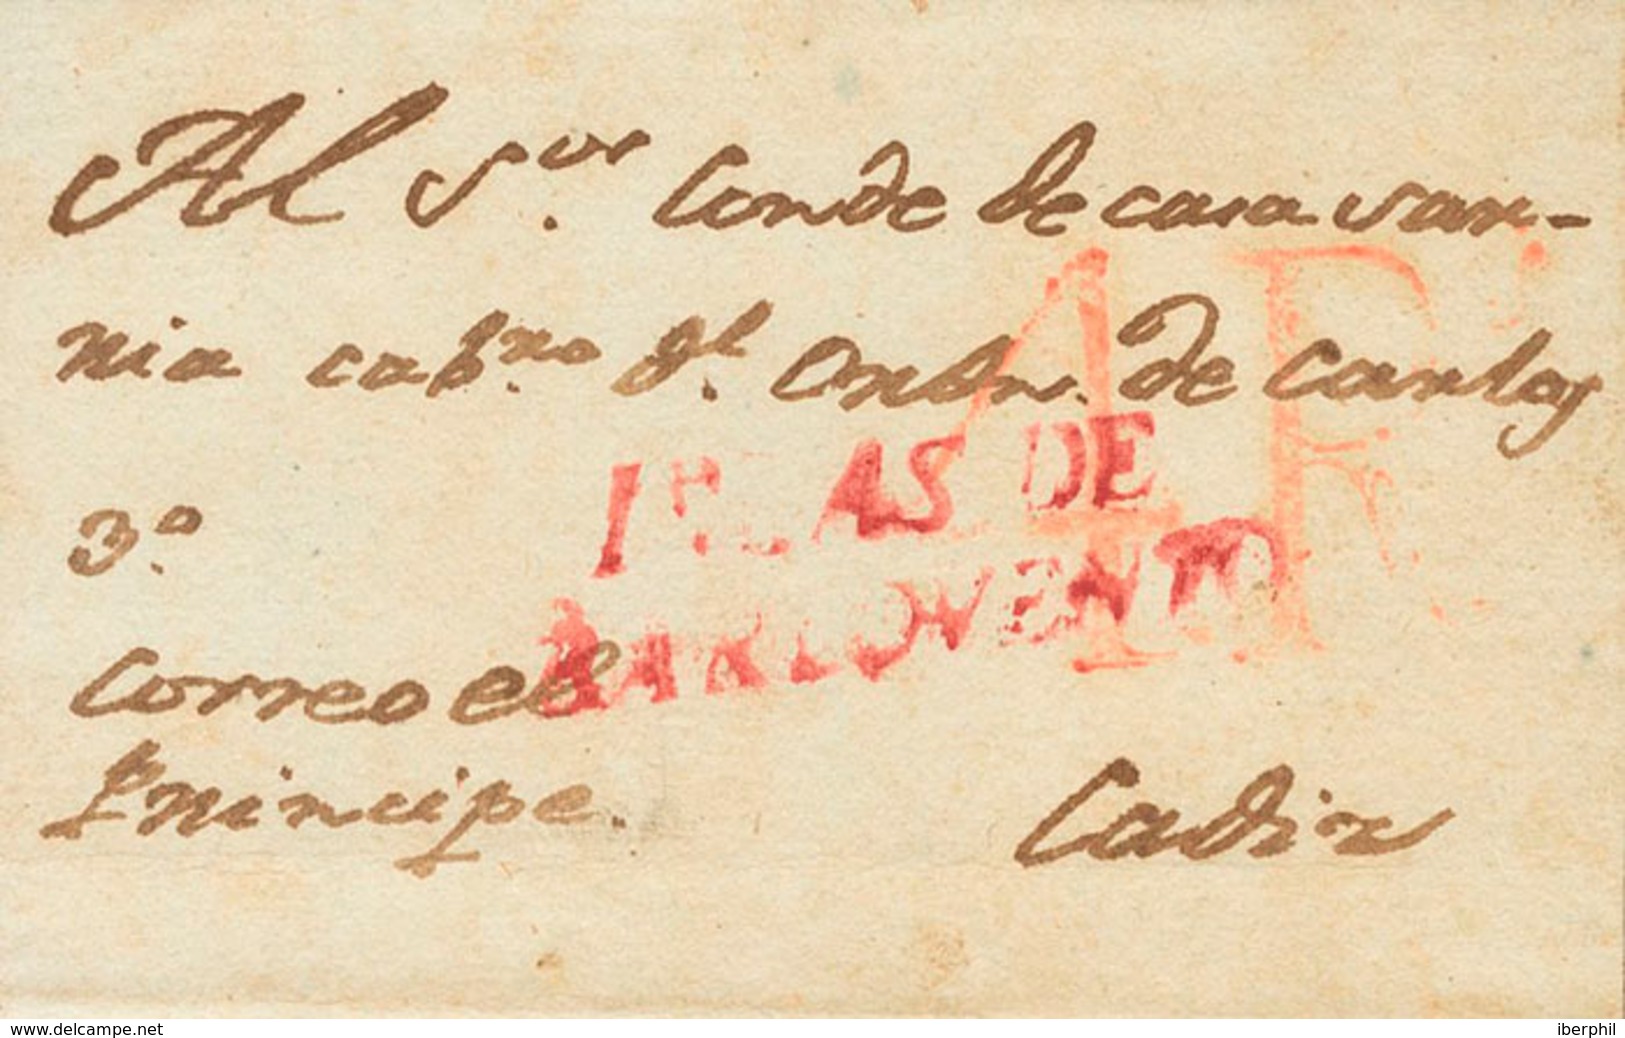 Al S.or Conde de casa sar-
nia cab.ro gl. Orden. de Carlos
3.o
YSLAS DE
BARLOVENTO
Correo el
Principe.
Cadiz
www.delcampe.net
iberphil